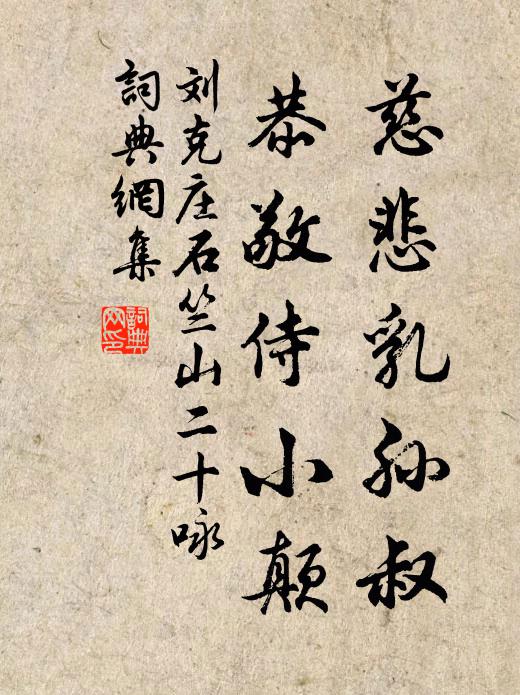 慈悲乳孙叔
恭敬侍小颠
刘克庄石竺山二十咏
詞典網集
詞典
网印